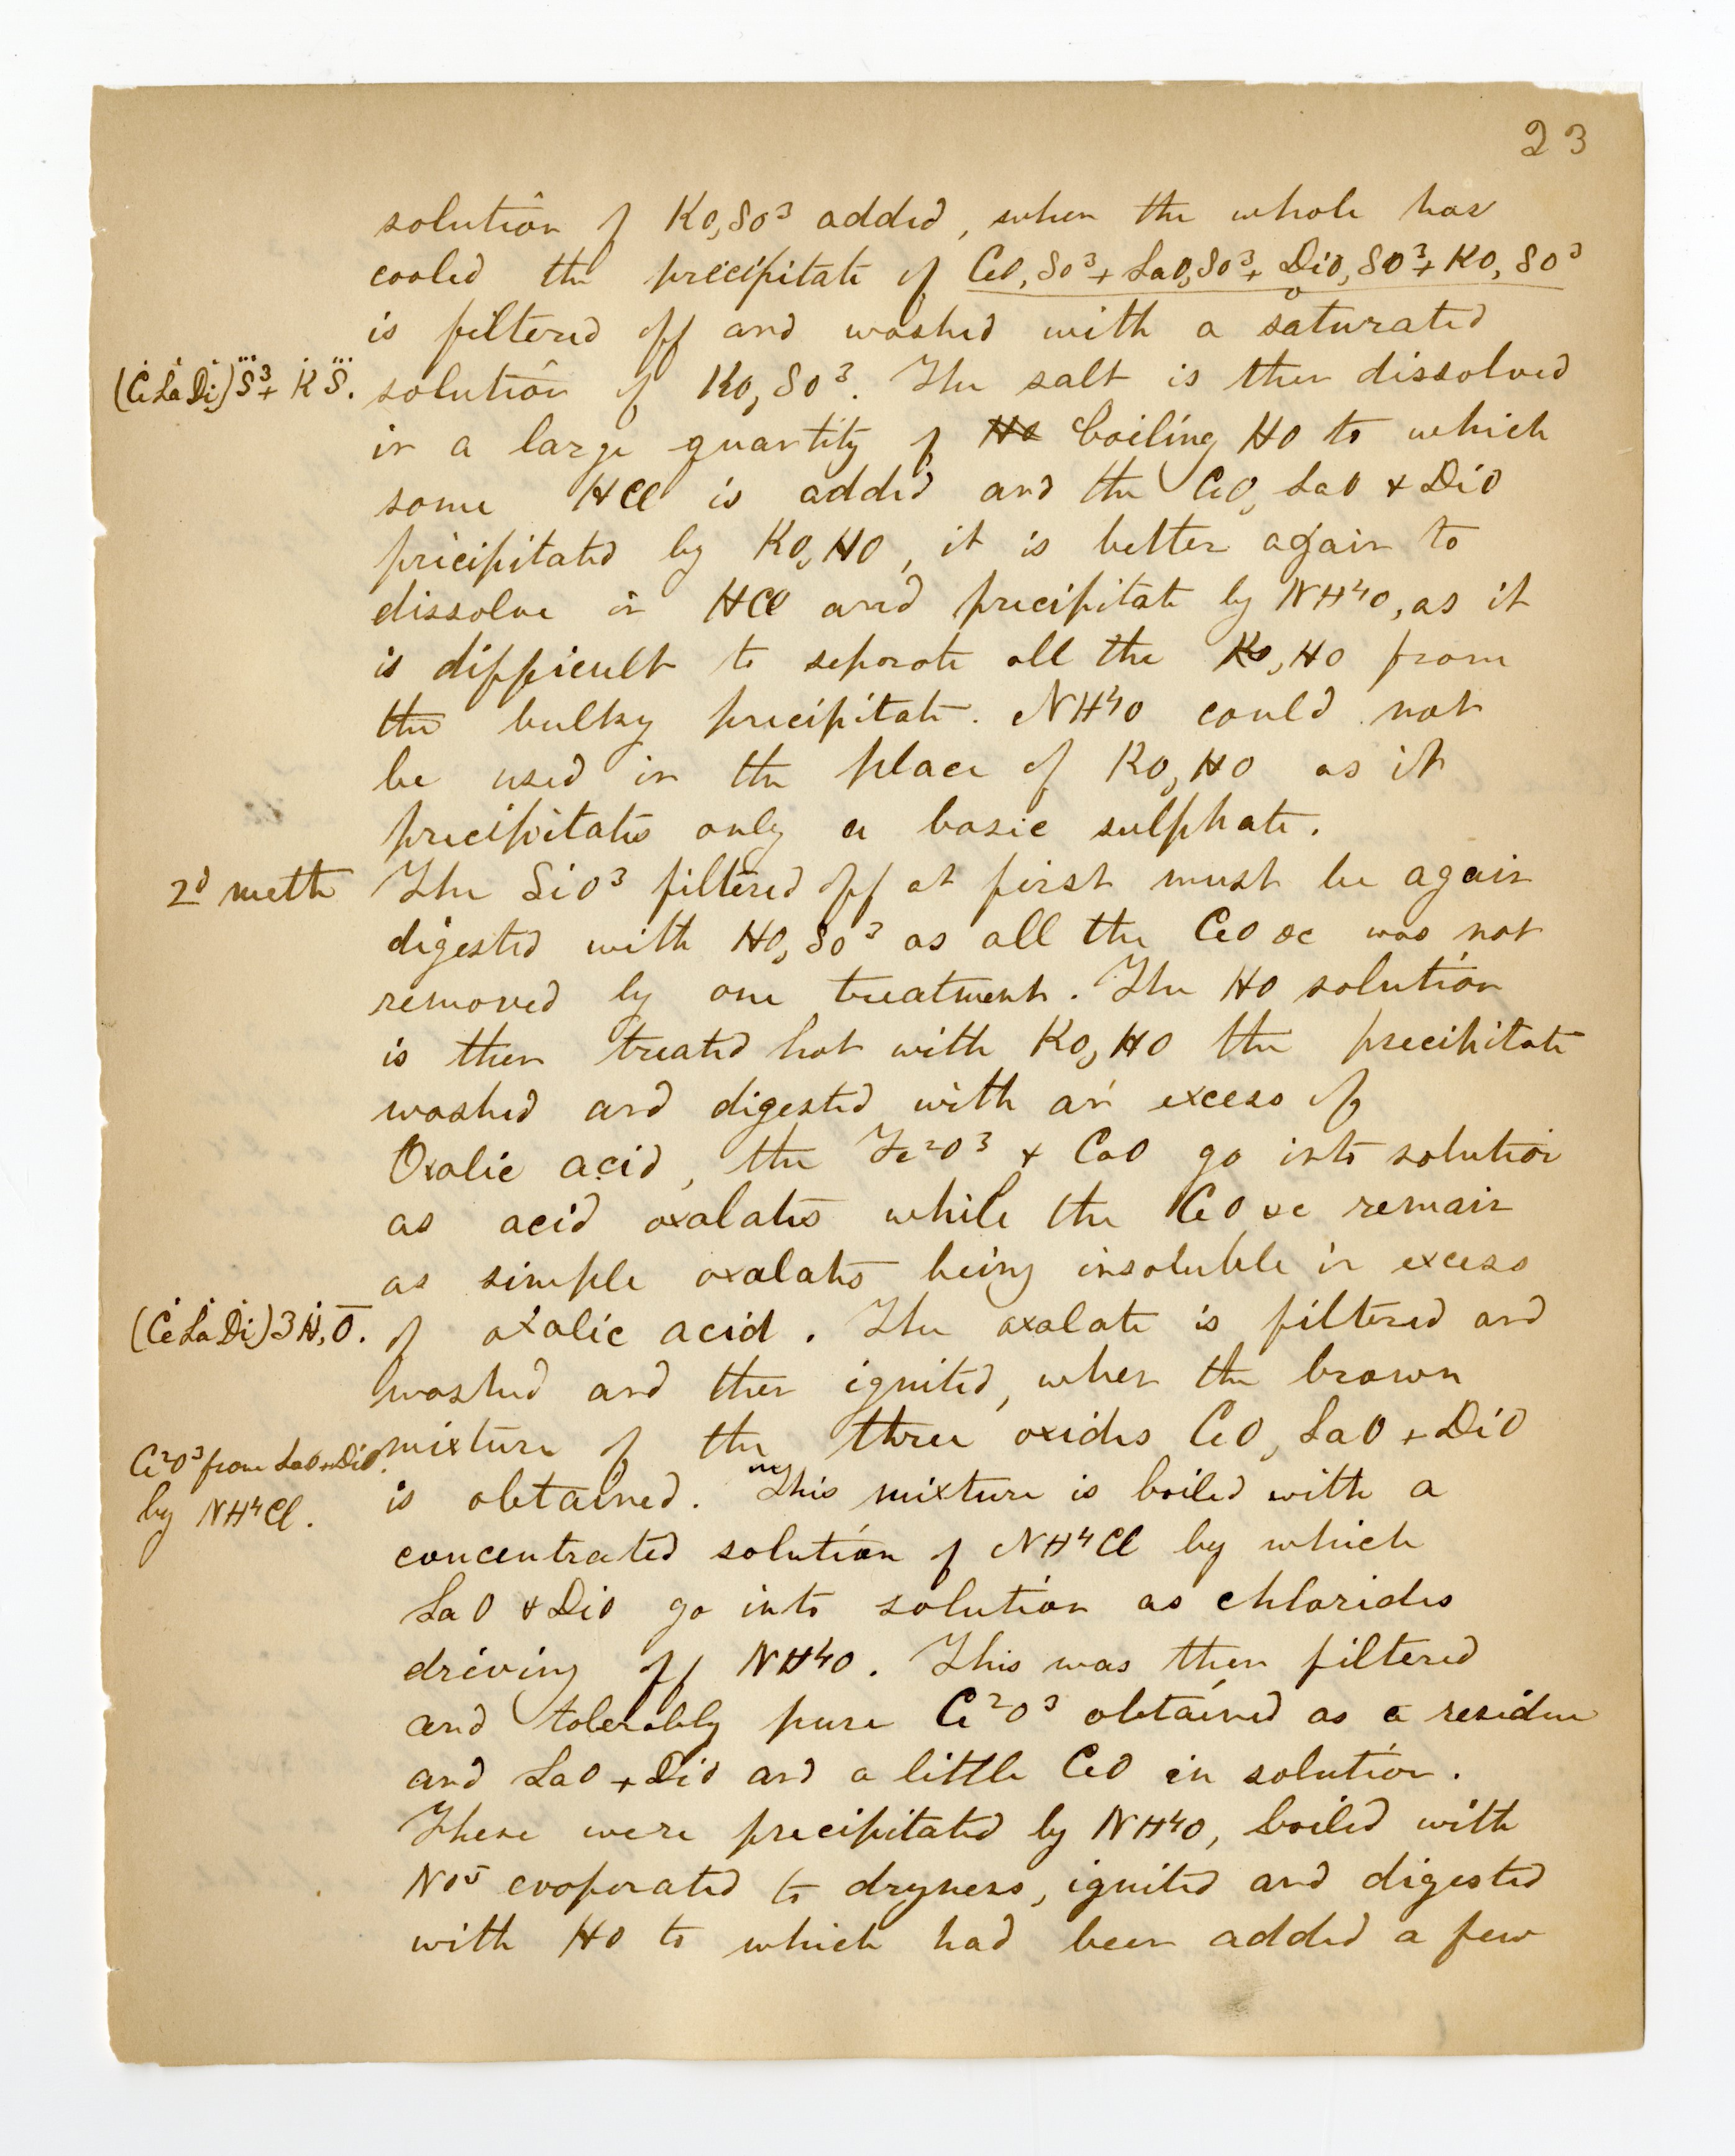 23
solution of KO,SO³ added, when the whole has
cooled the precipitate of CeO,SO³+LaO,SO³+DiO,SO³+KO,SO³
is filtered off and washed with a saturated
(ĊeL̇aḊi)S⃛³+K̇S⃛.
solution of KO,SO³. The salt is then dissolved
in a large quantity of HO boiling HO to which
some HCl is added and the CeO, LaO & DiO
precipitated by KO,HO, it is better again to
dissolve in HCl and precipitate by NH⁴O, as it
is difficult to separate all the KO,HO from
the bulky precipitate. NH⁴O could not
be used in the place of KO,HO as it
precipitates only a basic sulphate.
2d meth
The SiO³ filtered off at first must be again
digested with HO,SO³ as all the CeO &c was not
removed by one treatment. The HO solution
is then treated hot with KO,HO the precipitate
washed and digested with an excess of
Oxalic acid, the Fe²O³ & CaO go into solution
as acid oxalates while the CeO &c remain
as simple oxalates being insoluble in excess
(ĊeL̇aḊi)3Ḣ,Ō.
of oxalic acid. The oxalate is filtered and
washed and then ignited, when the brown
mixture of the three oxides CeO, LaO + DiO
Ce²O³ from LaO+DiO
by NH⁴Cl.
is obtained. This mixture is boiled with a
concentrated solution of NH⁴Cl by which
LaO & DiO go into solution as chlorides
driving off NH⁴O. This was then filtered
and tolerably pure Ce²O³ obtained as a residue
and LaO + DiO and a little CeO in solution.
These were precipitated by NH⁴O, boiled with
NO⁵ evaporated to dryness, ignited and digested
with HO to which had been added a few